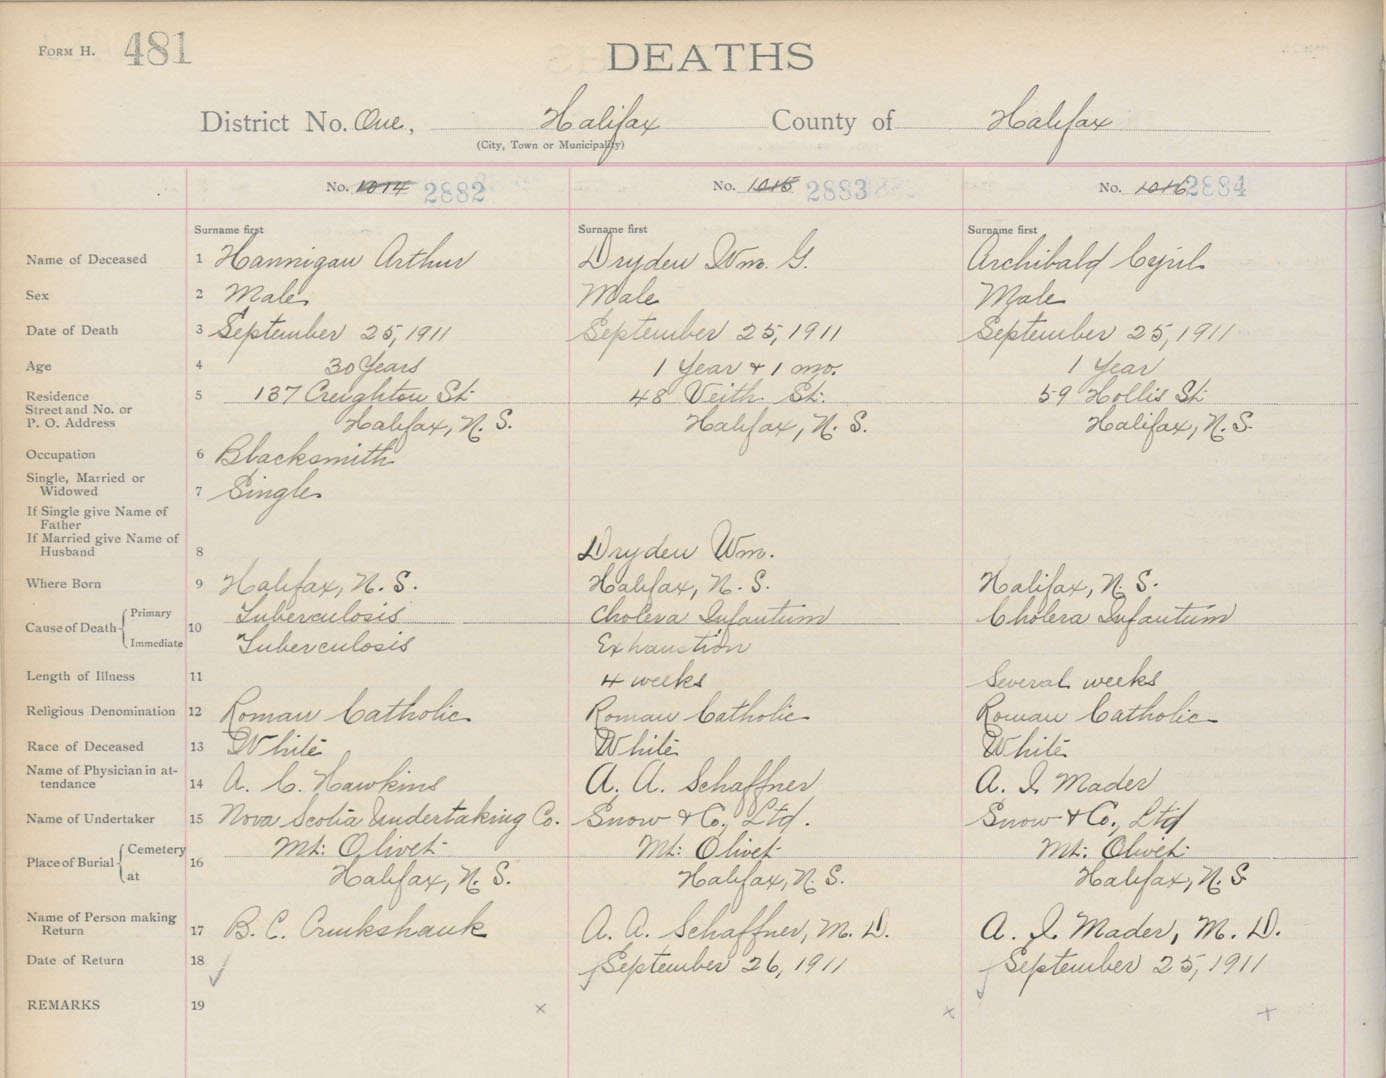 FORM H. 481
DEATHS
District No. One, Halifax County of Halifax
(City, Town or Municipality)
No. 1014 2882 No. 1015 2883 No. 1016 2884
Surname first Surname first Surname first
Name of Deceased 1 Hannigan Arthur Dryden Wm. G. Archibald Cyril
Sex 2 Male Male Male
Date of Death 3 September 25, 1911 September 25, 1911 September 25, 1911
Age 4 30 Years 1 Year & 1 mo. 1 Year
Residence 5 137 Creighton St. 48 Veith St. 59 Hollis St.
Street and No. or
P. O. Address Halifax, N. S. Halifax, N. S. Halifax, N. S.
Occupation 6 Blacksmith
Single, Married or
Widowed 7 Single
If Single give Name of
Father
If Married give Name of
Husband 8 Dryden Wm.
Where Born 9 Halifax, N. S. Halifax, N. S. Halifax, N. S.
Cause of Death Primary 10 Tuberculosis Cholera Infantum Cholera Infantum
Immediate Tuberculosis Exhaustion
Length of Illness 11 4 weeks Several weeks
Religious Denomination 12 Roman Catholic Roman Catholic Roman Catholic
Race of Deceased 13 White White White
Name of Physician in at-
tendance 14 A. C. Hawkins A. A. Schaffner A. I. Mader
Name of Undertaker 15 Nova Scotia Undertaking Co. Snow & Co., Ltd. Snow & Co., Ltd
Place of Burial Cemetery 16 Mt. Olivet Mt. Olivet Mt. Olivet
at Halifax, N. S. Halifax, N. S. Halifax, N. S
Name of Person making
Return 17 B. C. Cruikshank A. A. Schaffner, M. D. A. I. Mader, M. D.
Date of Return 18 September 26, 1911 September 25, 1911
REMARKS 19 x x x